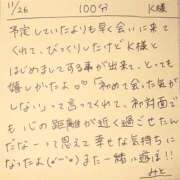 11/26 100分 K様
予定していたよりも早く会いに来て
くれて、びっくりしたけどK様と
はじめましてする事が出来て、とっても
嬉しかったよ♡♡「初めて会った気が
しない」って言ってくれて、初対面で
も心の距離が近く過ごせたん
だなーって思えて幸せな気持ちに
なったよ(〃'▽'〃)また一緒に遊ぼ!!
みと